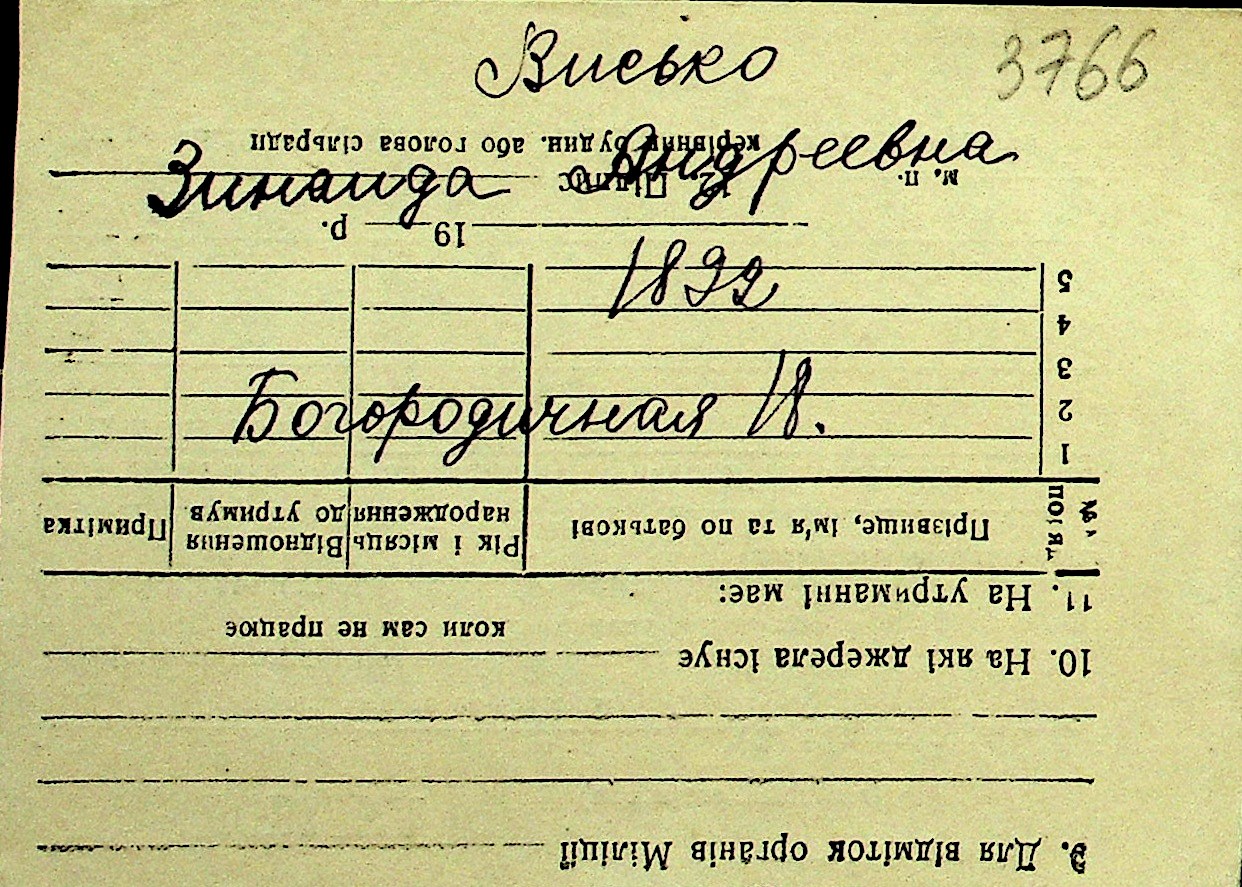 Висько 3766
Зинаида Андреевна
1892
Богородичная 18.
9. Для відміток органів Міліції
10. На які джерела існує
коли сам не працює
11. На утриманні має:
№ по порядк. Прізвище, ім'я та по батькові Рік і місяць народження Відношення до утримув. Примітка
1
2
3
4
5
19 р.
м. п. 12. Підпис
керівник будин. або голова сільради